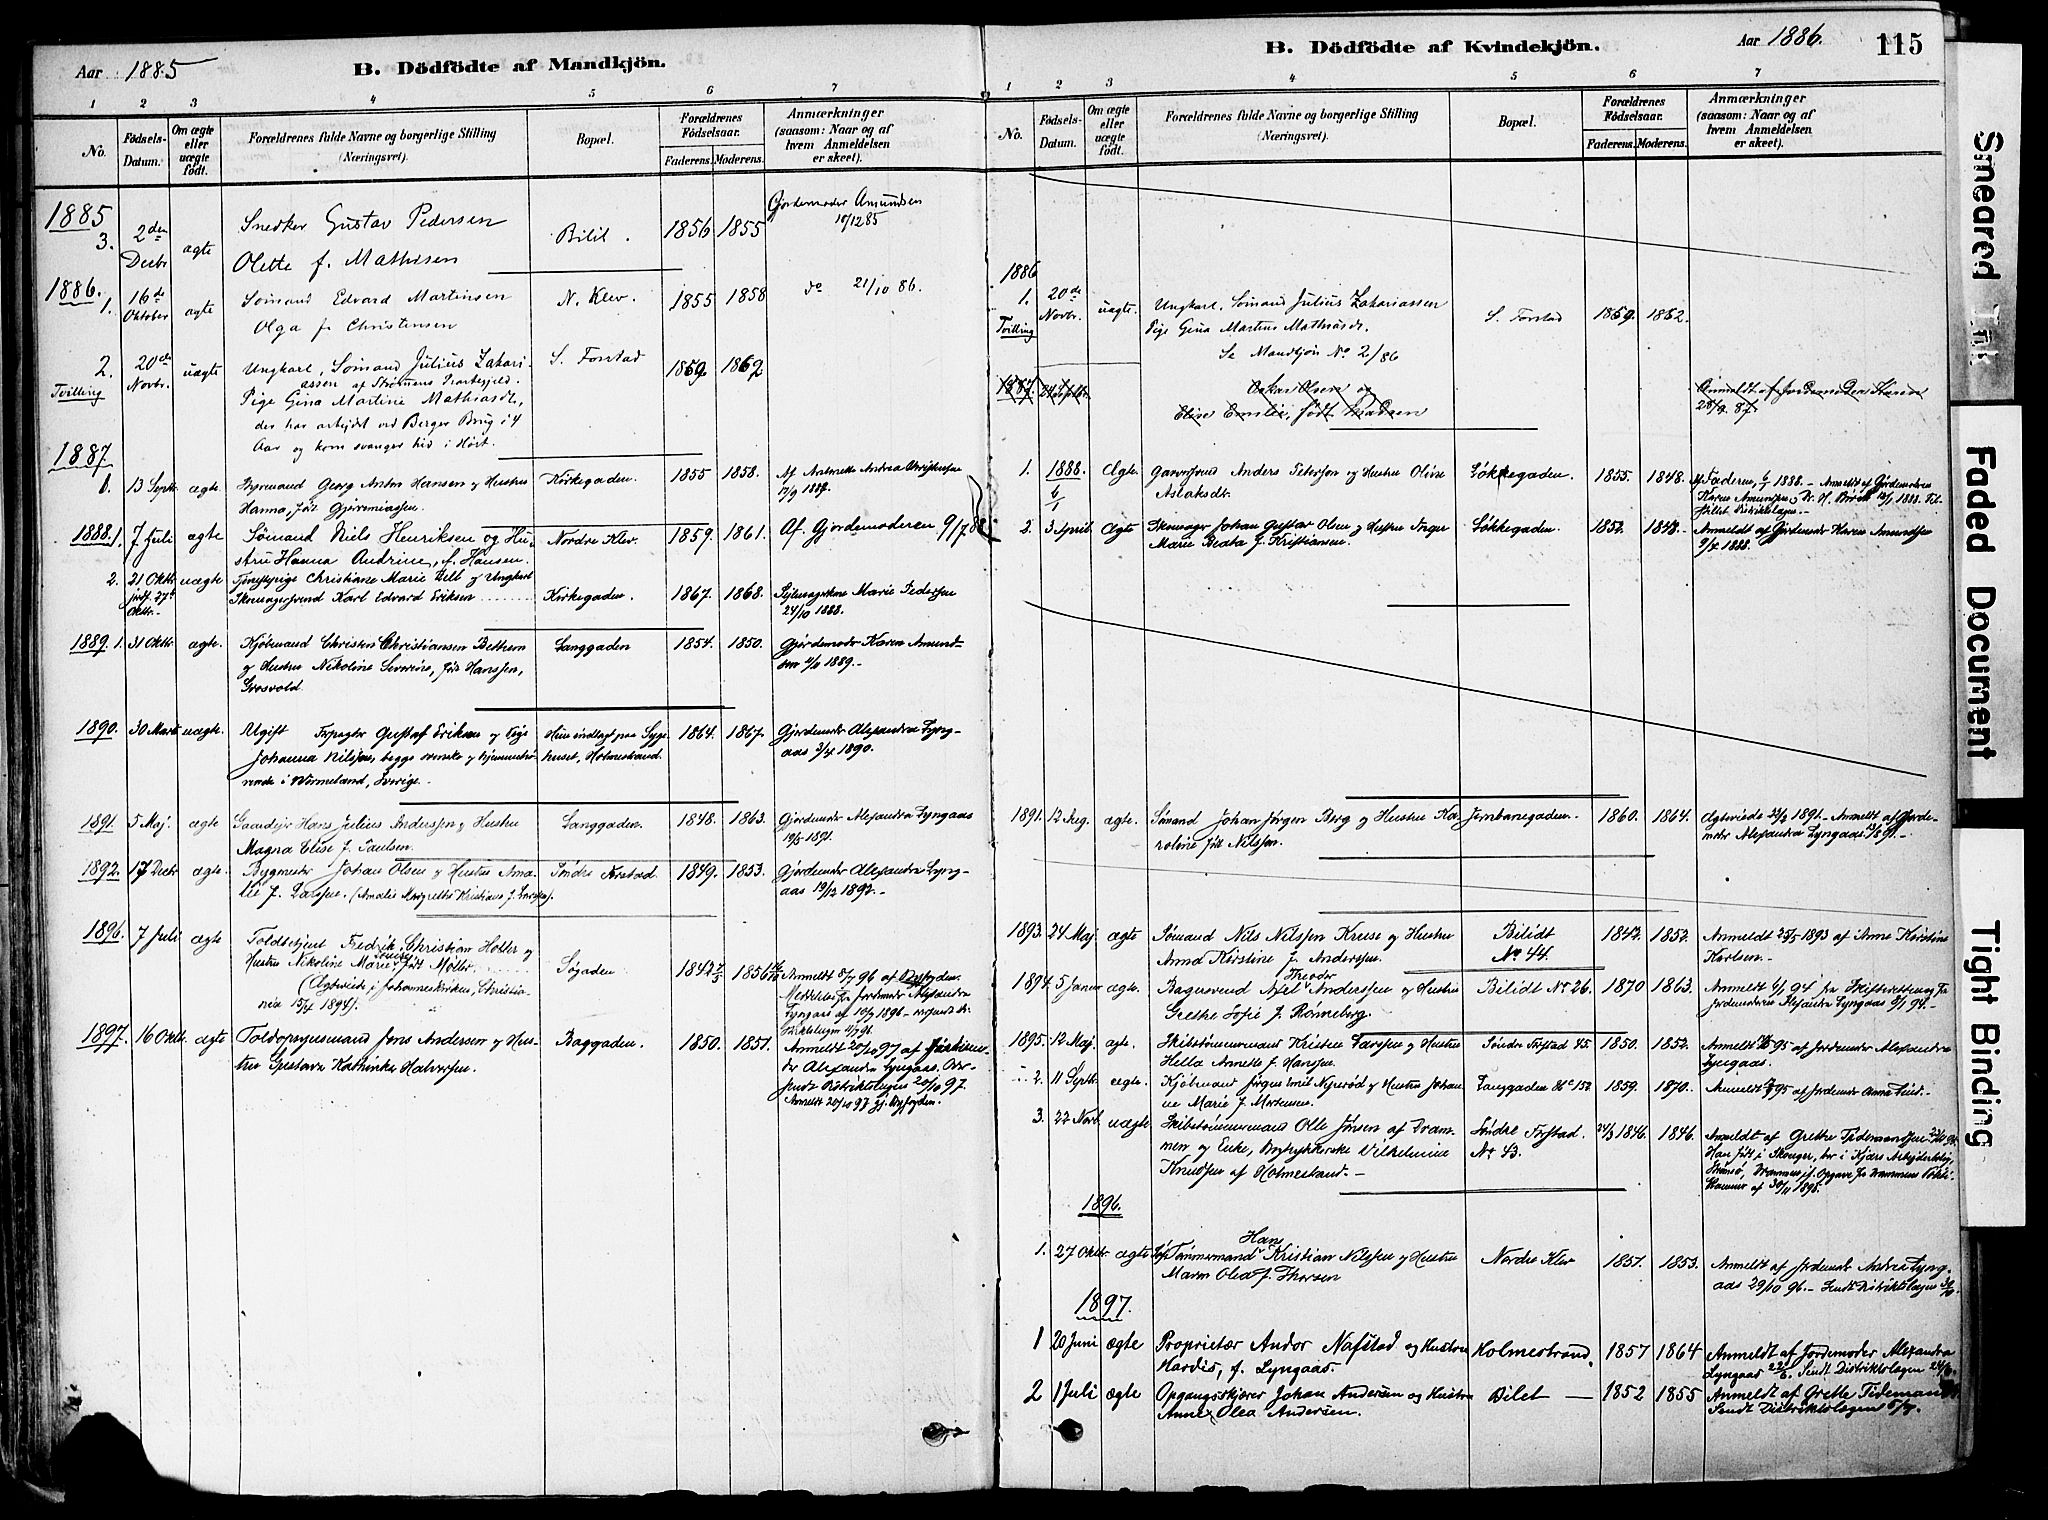 Aar 1885
B. Dödfödte af Mandkjön.
1 2 3 4 5 6 7
No.
Födsels-Datum.
Om ægte eller uægte födt.
Forældrenes fulde Navne og borgerlige Stilling
(Næringsvei).
Bopæl.
Forældrenes Födselsaar.
Faderens. Moderens.
Anmærkninger
(saasom: Naar og af
hvem Anmeldelsen
er skeet).
1885
3. 2den Decbr ægte Snedker Gustav Pedersen Bilit. 1856 1855 Gjordemoder Amundsen
10/12 85
Olette f. Mathisen
1886.
1. 16de Oktober ægte Sømand Edvard Martinsen N. Klev. 1855 1858 do 21/10 86.
Olga f. Christensen
2. Tvilling 20de Novbr. uægte Ungkarl, Sømand Julius Zakari- S. Forstad 1859 1862
assen af Strømms Præstegjeld.
Pige Gina Martine Mathiasdt,
der har arbejdet ved Berger Brug i 4
Aar og kom svanger hid i Høst.
1887
1. 13 Septr. ægte Styrmand Georg Anton Hansen og Hustru Kirkegaden. 1855 1858.
Hanna, født
1888. 1. 7 Juli ægte Sømand Niels Henriksen og Hu- Nordre Klev. 1859. 1861. Af Gjordemoderen 9/7 88.
stru Hanna Andrine, f. Hansen.
2. 21 Oktbr uægte Christiane Marie og Ungkarl
Skomagersvend Karl Edvard Eriksen Kirkegaden. 1867. 1868. Marie Pedersen
24/10 1888.
1889. 1. 31 Oktbr ægte. Kjøbmand Christen Christiansen Langgaden 1854. 1850. Gjordemoder Karen Amund-
sen 1889.
og Hustru Nikoline Severine, født Hanssen,
Grosvold.
1890. 30 Marts uægte. Ugift Gustaf Eriksen og Pige Hun indlagt paa Syge- 1864. 1867. Gjordemoder Alexandra Lyng-
aas 3/4 1890.
Johanna Nilssen, begge svenske og hjemmehø- huset, Holmestrand.
rende i Wermeland, Sverige.
1891. 5 Maj. ægte Gaardejer Hans Julius Anderssen og Hustru Langgaden. 1848. 1863. Gjordemoder Alexandra Lyngaas
19/5 1891.
Magna Elise f. Paulsen.
1892. 17 Decbr ægte. Bygmester Johan Olsen og Hustru Ama- Søndre Forstad. 1849. 1853. Gjordemoder Alexandra Lyng-
aas 19/12 1892.
lie f. Larssen. (Amalie Margrethe Kristiane f. Larssen).
1896. 7 Juli ægte Toldbetjent Fredrik Christian Holter og
Hustru Nikoline Marie Louise født Møller Søgaden 1842 1856 Anmeldt 8/7 96 af
(Ægteviede i Johanneskirken, Christia- Meddelelse fra Jordemoder Alexandra
nia 15/4 1894). Lyngaas af 10/7 1896
1897. 16 Oktbr. ægte Toldopsynsmand Jens Andersen og Hus- Baggaden. 1850. 1851. Anmeldt 20/10 97 af Jordemo-
tru Gustava Kathinka Halvorsen. der Alexandra Lyngaas. Over-
sendt Distriktslægen 20/10 97.
Anmeldt 20/10 97
B. Dödfödte af Kvindekjön. Aar 1886. 115
1 2 3 4 5 6 7
No.
Födsels-Datum.
Om ægte eller uægte födt.
Forældrenes fulde Navne og borgerlige Stilling
(Næringsvei).
Bopæl.
Forældrenes Födselsaar.
Faderens. Moderens.
Anmærkninger
(saasom: Naar og af
hvem Anmeldelsen
er skeet).
1886
1. Tvilling 20de Novbr. uægte. Ungkarl, Sømand Julius Zakariassen S. Forstad 1859. 1862.
Pige Gina Martine Mathiasdt.
Se Mandkjøn No 2/86
1887. Oskar Olsen og Anmeldt af Jordemoder
Elise Emilie, født Madsen 28/9 87.
1. 1888. 6/1 Ægte. Anders Peterson og Hustru Oline Løkkegaden. 1855. 1848. Faderen, 6/1 1888. Anmeldt af Gjordemoderen
Aslaksdt. Karen Amundsen 1888. Til-
stillet Distriktslægen.
2. 3 April Ægte Skomager Johan Gustav Olsen og Hustru Inger Løkkegaden. 1852. 1848. Anmeldt af Gjordemoder Karen Amundsen
9/4 1888.
Marie Beata f. Kristiansen.
1891. 12 Aug. ægte. Sømand Johan Jørgen Berg og Hustru Ka- Jernbanegaden. 1860. 1864. Ægteviede 1891. Anmeldt af Jorde-
roline født Nilssen. moder Alexandra Lyngaas 1891.
1893. 24 Maj. ægte Sømand Nils Nilssen Kruse og Hustru Bilidt 1842. 1852. Anmeldt 25/5 1893 af Anne Kirstine
Anna Kirstine f. Anderssen. No 44. Karlsen.
1894. 5 Januar ægte. Bagersvend Axel Theodor Anderssen og Hustru Bilidt No 26. 1870 1863. Anmeldt 6/1 94 fra Skifteretten
Grethe Sofie f. Rønneberg. Jordemoderen Alexandra Lyngaas 94.
1895. 12 Maj. ægte. Skibstømmermand Kristen Larssen og Hustru Søndre Forstad 45. 1850. 1852. Anmeldt 95 af Jordemoder Alexandra
Hella Annette f. Hanssen. Lyngaas.
2. 11 Septbr. ægte. Kjøbmand Jørgen Emil Nyerød og Hustru Johan- Langgaden No 152 1859. 1870. Anmeldt 95 af Jordemoder Anna
ne Marie f. Mortensen.
3. 22 Novbr. uægte Skibstømmermand Olle Jensen af Dram- Søndre Forstad. 24/3 1846. 1846. Anmeldt af Grethe Tidemandsen
men og Enke, Vilhelmine No 43. Han født i Skouger, bor i Kjærs Arbejderbolig,
Knudsen af Holmestrand. Strømsø, Drammen
af 30/11 1895.
1896.
1. 27 Oktbr ægte Tømmermand Hans Kristian Nilssen og Hustru Nordre Klev 1857. 1853. Anmeldt af Jordemoder Lyng-
Maren Olea f. Thorsen aas 29/10 96. Sendt Distriktslægen
1897.
1 20 Juni ægte Proprietær Andor Nafstad og Hustru Holmestrand. 1857 1864 Anmeldt af Jordemoder Alexandra
Hardis, f. Lyngaas. Lyngaas 22/6. Sendt Distriktslægen
2 1 Juli ægte Opgangsskjærer Johan Andersen og Hustru Bilet 1852 1855 Anmeldt af Grethe Tideman
Anne Olea Andersen. Sendt Distriktslægen 5/7.
Smeared Ink
Faded Document
Tight Binding